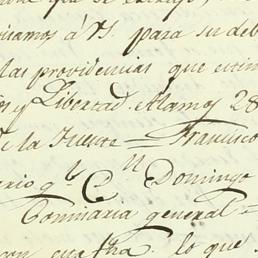 que se
visamos á VS. para su deb
las providencias que estim
y Libertad. Alamos 28
de la Fuente = Francisco
ario gl. C.n Domingo
Comisaria general =
con esta fha. lo que